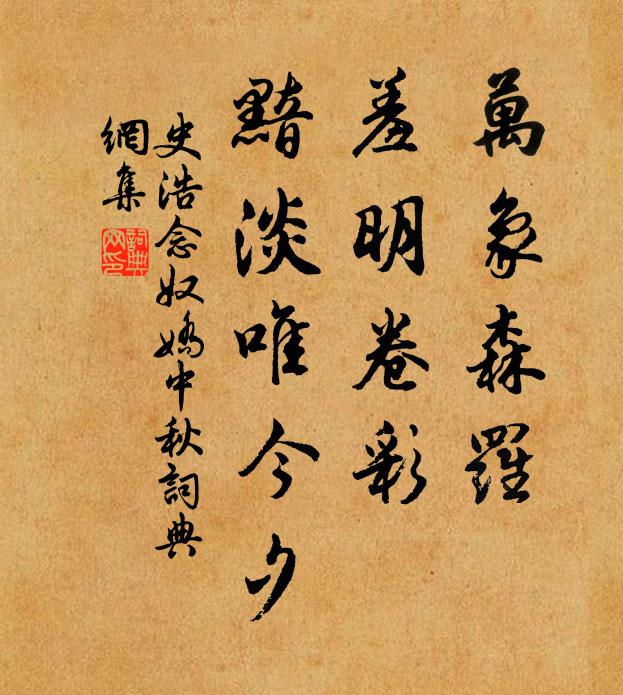 萬象森羅
羞明卷彩
黯淡唯今夕
史浩念奴嬌中秋詞典
網集
詞典網印